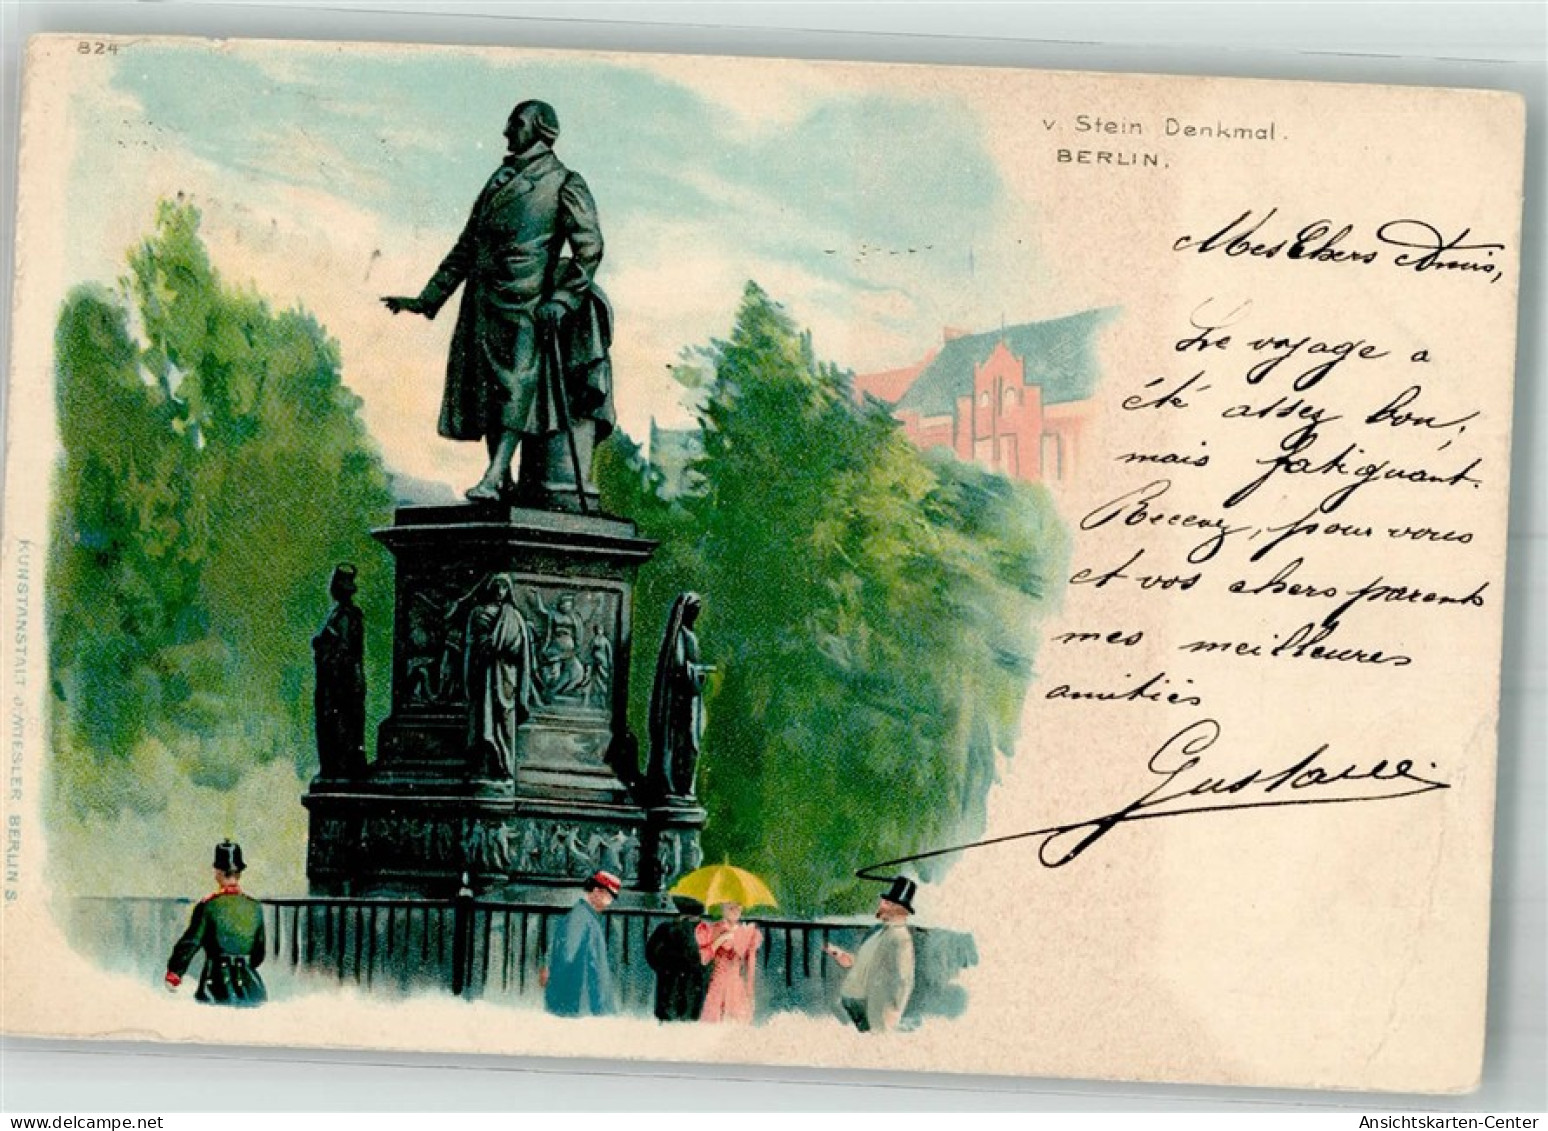 824
v. Stein Denkmal.
BERLIN.
Mes Chers Amis,
Le voyage a
été assez bon,
mais fatiguant.
Recevez, pour vous
et vos chers parents
mes meilleures
amitiés
Gustave
KUNSTANSTALT J. MIESLER BERLIN S.
Ansichtskarten-Center